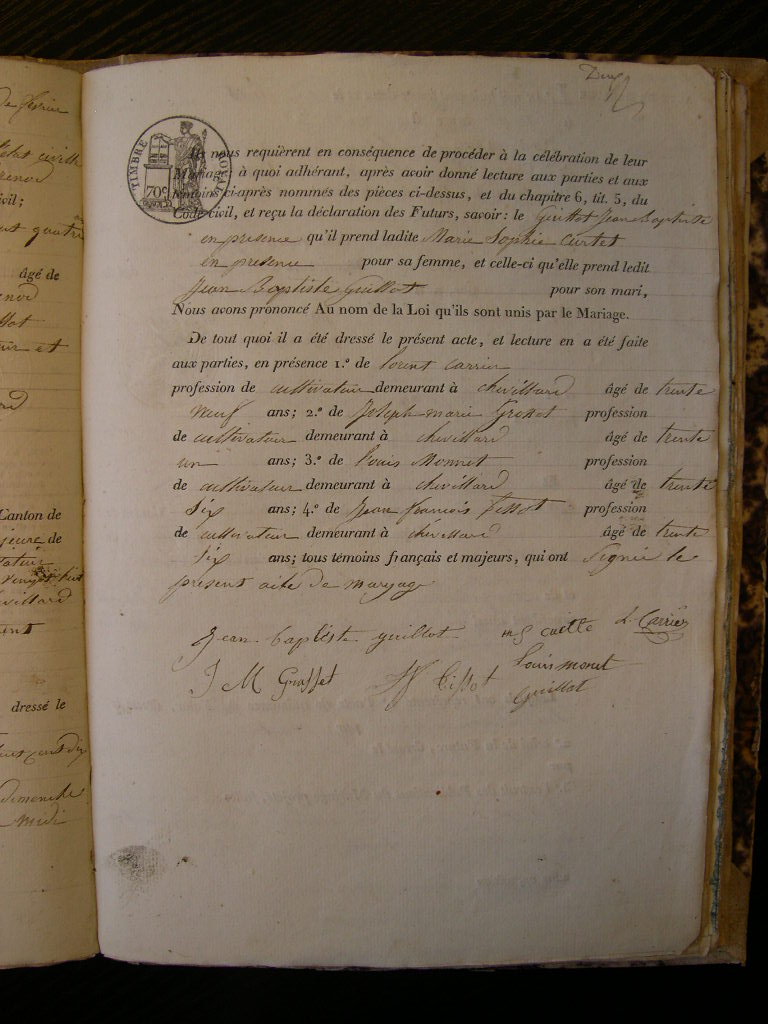 de fevrier
civil;
âgé de
et
Canton de
dressé le
dimanche
midi
Deux
TIMBRE ROYAL
70c
Ils nous requièrent en conséquence de procéder à la célébration de leur
Mariage, à quoi adhérant, après avoir donné lecture aux parties et aux
témoins ci-après nommés des pièces ci-dessus, et du chapitre 6, tit. 5, du
Code civil, et reçu la déclaration des Futurs, savoir: le Guillot Jean Baptiste
en presence qu'il prend ladite Marie Sophie Curtet
en presence pour sa femme, et celle-ci qu'elle prend ledit
Jean Baptiste Guillot pour son mari,
Nous avons prononcé Au nom de la Loi qu'ils sont unis par le Mariage.
De tout quoi il a été dressé le présent acte, et lecture en a été faite
aux parties, en présence 1.º de lorent Carrier
profession de cultivateur demeurant à chevillard âgé de trente
neuf ans; 2.º de Joseph marie Grosset profession
de cultivateur demeurant à chevillard âgé de trente
un ans; 3.º de Louis Monnet profession
de cultivateur demeurant à chevillard âgé de trente
six ans; 4.º de Jean francois Tissot profession
de cultivateur demeurant à chevillard âgé de trente
six ans; tous témoins français et majeurs, qui ont signée le
present acte de maryage
Jean baptiste guillot m s L. Carrier
J M Grosset Tissot Louis monet
Guillot